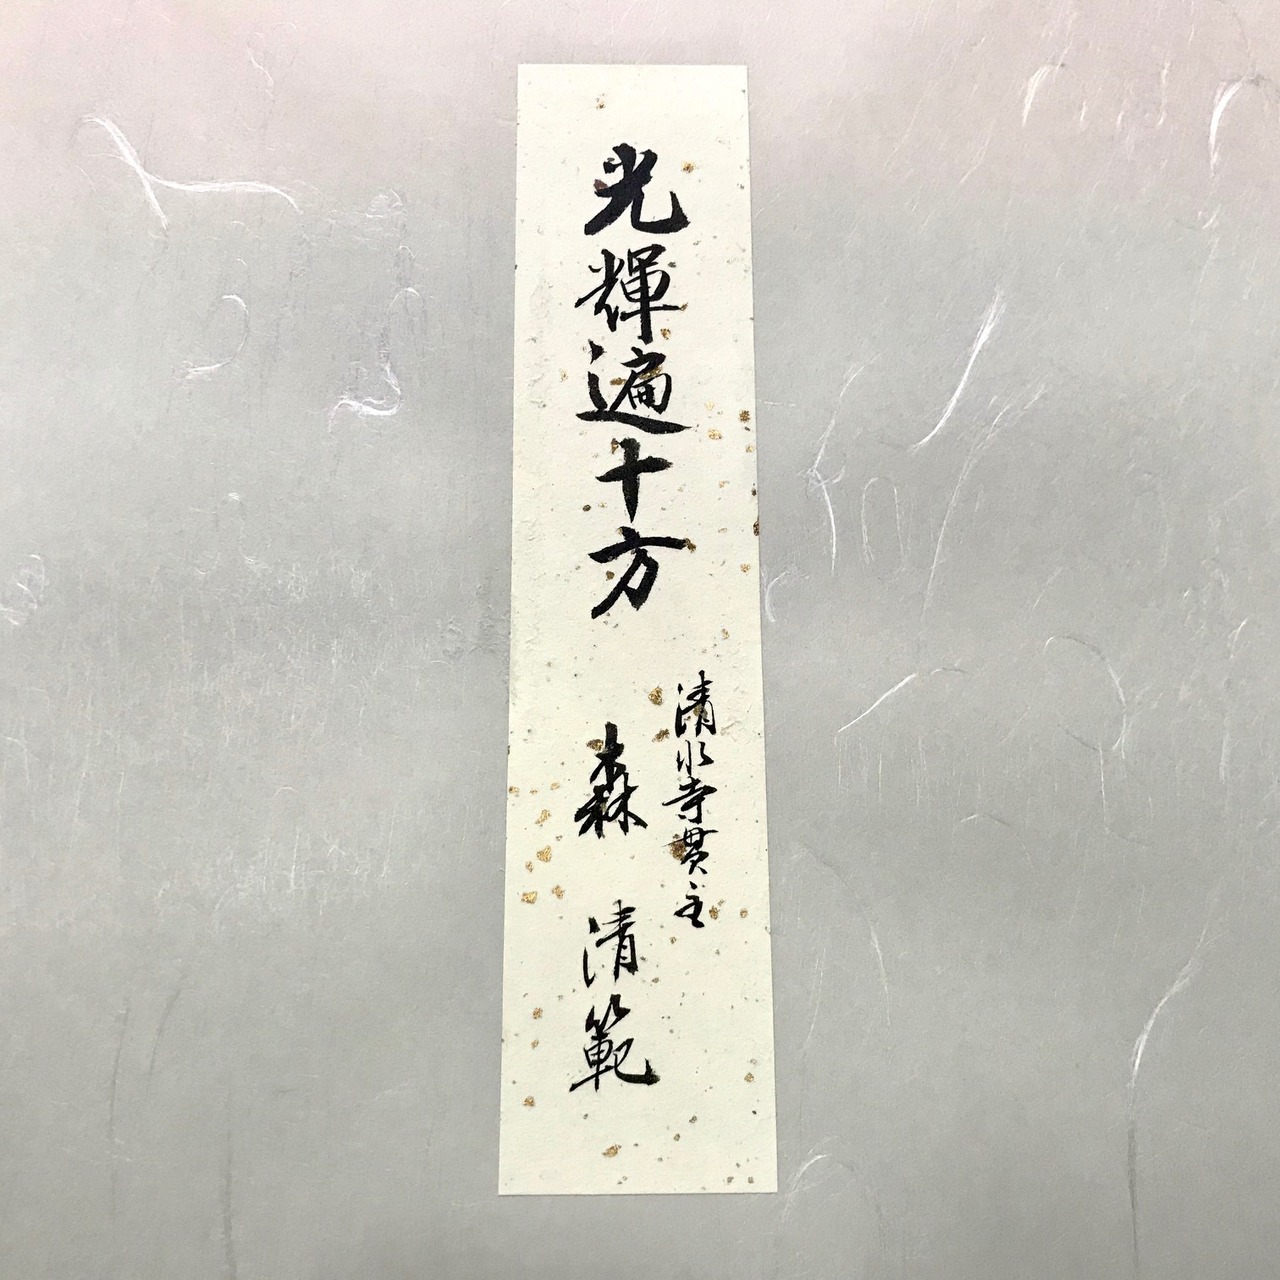 光輝遍十方
清水寺貫主
森 清範